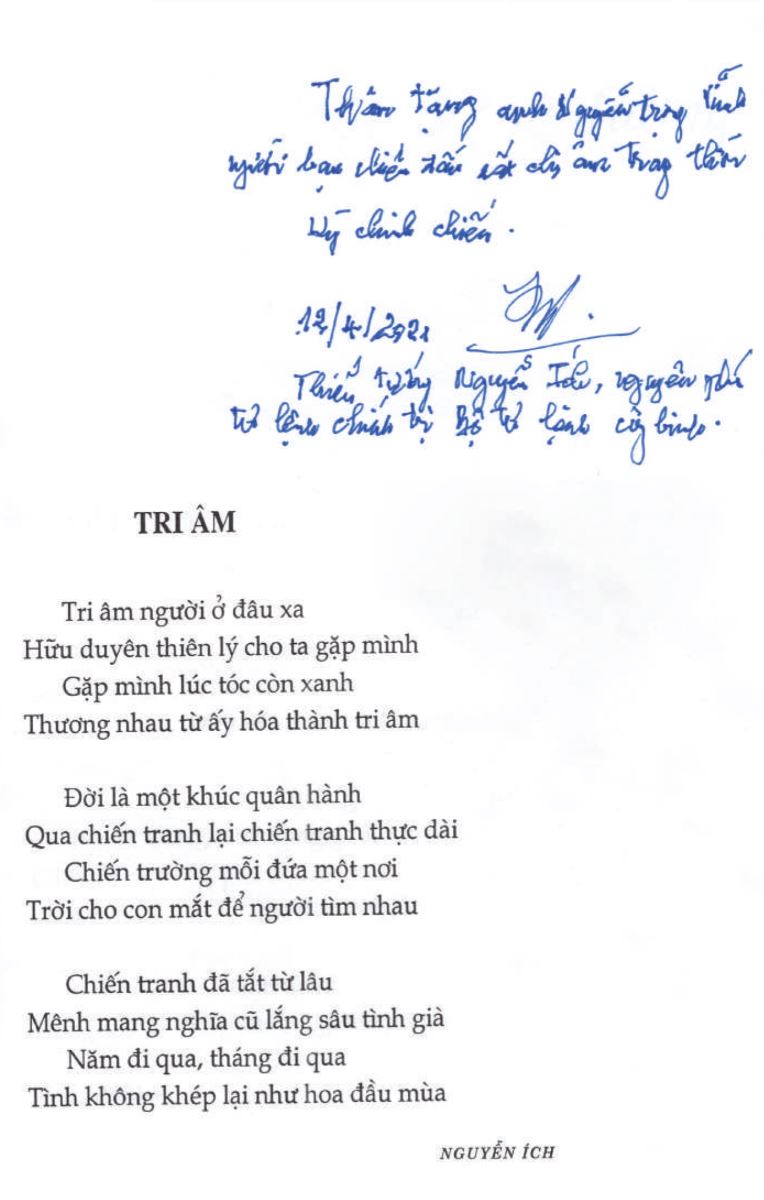 Thân tặng anh Nguyễn trọng
người bạn chiến đấu rất tri âm trong thời
kỳ chinh chiến.
12/4/2021
Thiếu tướng Nguyễn Ích, nguyên phó
tư lệnh chính trị Bộ tư lệnh công binh.
TRI ÂM
Tri âm người ở đâu xa
Hữu duyên thiên lý cho ta gặp mình
Gặp mình lúc tóc còn xanh
Thương nhau từ ấy hóa thành tri âm
Đời là một khúc quân hành
Qua chiến tranh lại chiến tranh thực dài
Chiến trường mỗi đứa một nơi
Trời cho con mắt để người tìm nhau
Chiến tranh đã tắt từ lâu
Mênh mang nghĩa cũ lắng sâu tình già
Năm đi qua, tháng đi qua
Tình không khép lại như hoa đầu mùa
NGUYỄN ÍCH